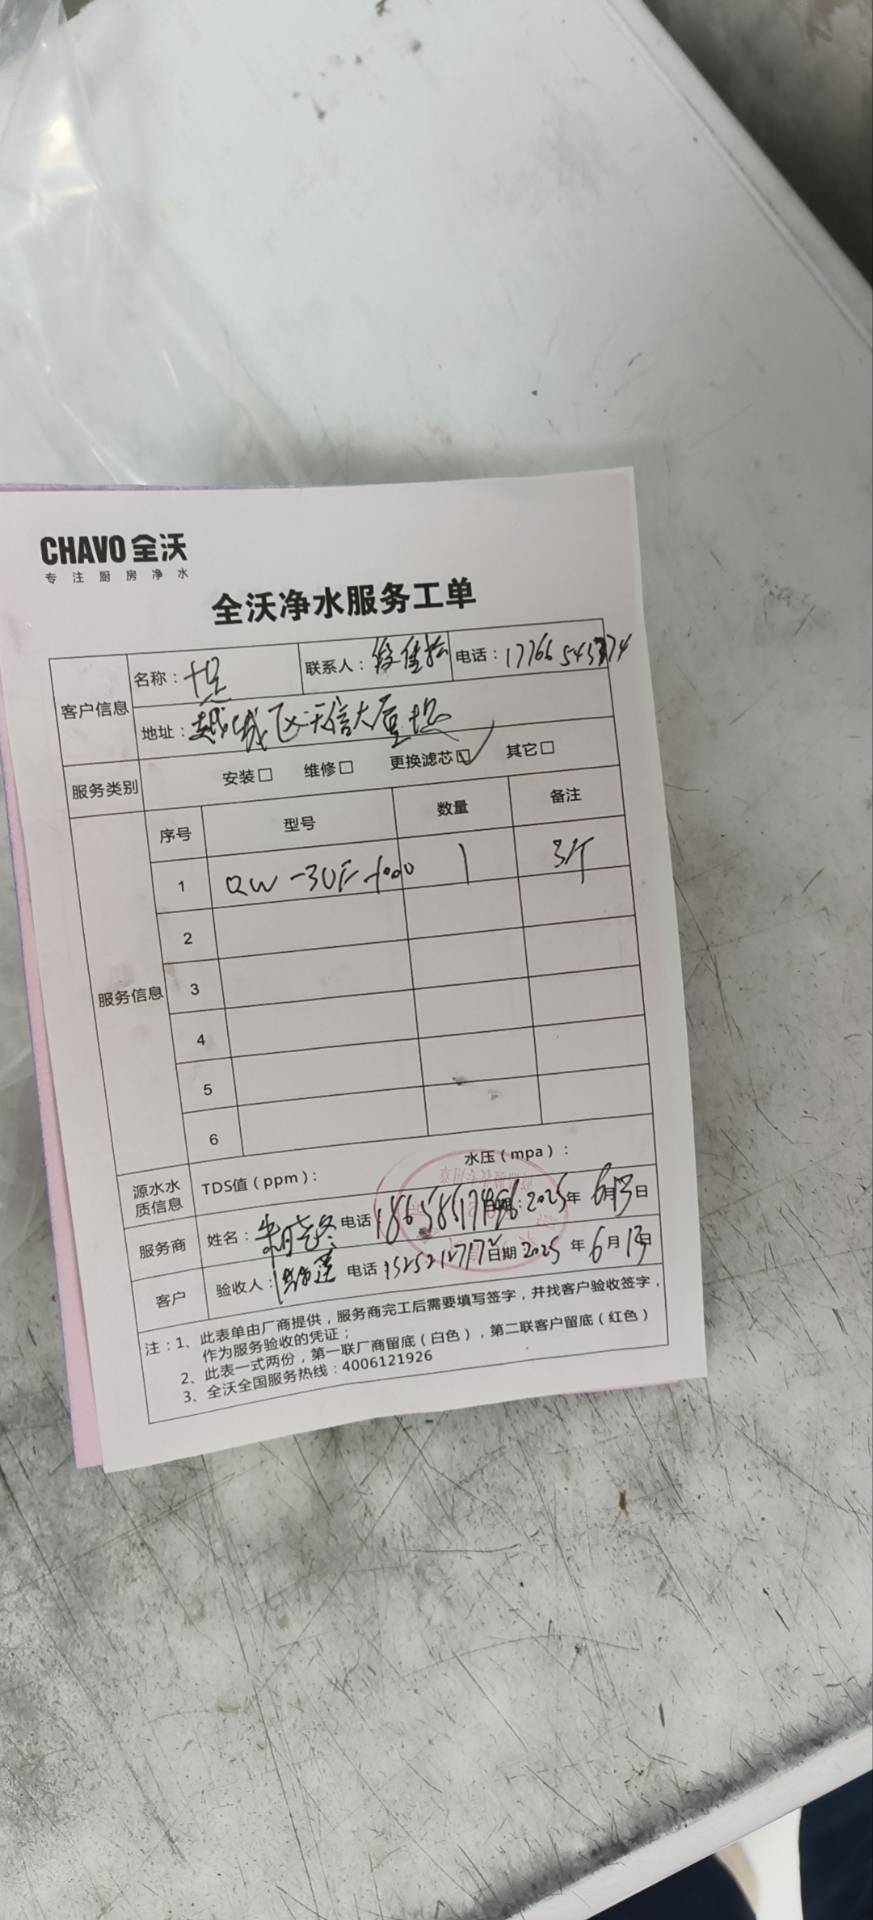 CHAVO 全沃
专注厨房净水
全沃净水服务工单
客户信息
名称：
联系人：
电话：
地址：越城区天信大厦
服务类别
安装□ 维修□ 更换滤芯☑ 其它□
服务信息
序号 型号 数量 备注
1 QW-3UF-1000 1 3个
2
3
4
5
6
源水水质信息
TDS值（ppm）： 水压（mpa）：
服务商 姓名： 电话 日期：2025年6月13日
客户 验收人： 电话 15252127172 日期 2025年6月13日
注：1、此表单由厂商提供，服务商完工后需要填写签字，并找客户验收签字，
作为服务验收的凭证；
2、此表一式两份，第一联厂商留底（白色），第二联客户留底（红色）
3、全沃全国服务热线：4006121926